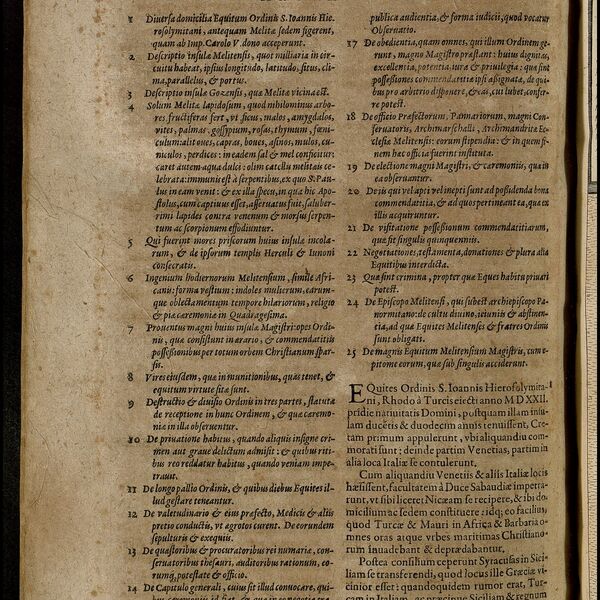 1 Diversa domicilia Equitum Ordinis S. Ioannis Hie-
rosolymitani, antequam Melitæ sedem figerent,
quam ab Imp. Carolo V. dono acceperunt.
2 Descriptio insulæ Melitensis, quot milliaria in cir-
cuitu habeat, ipsius longitudo, latitudo, situs, cli-
ma, parallelus, & portus.
3 Descriptio insulæ Gozensis, quæ Melitæ vicina est.
4 Solum Melitæ lapidosum, quod nihilominus arbo-
res fructiferas fert, vt ficus, malos, amygdalos,
vites, palmas, gossypium, rosas, thymum, fœni-
culum: alit oues, capras, boues, asinos, mulos, cu-
niculos, perdices: in eadem sal & mel conficitur:
caret autem aqua dulci: olim catelli melitæi ce-
lebrati: immunis est à serpentibus, ex quo S. Pau-
lus in eam venit: & ex illa specu, in qua hic Apo-
stolus, cum captiuus esset, asseruatus fuit, saluber-
rimi lapides contra venenum & morsus serpen-
tum ac scorpionum effodiuntur.
5 Qui fuerint mores priscorum huius insulæ incola-
rum, & de ipsorum templis Herculi & Iunoni
consecratis.
6 Ingenium hodiernorum Melitensium, simile Afri-
canis: forma vestium: indoles mulierum, earum-
que oblectamentum tempore hilariorum, religio
& piæ ceremoniæ in Quadragesima.
7 Prouentus magni huius insulæ Magistri: opes Ordi-
nis, quæ consistunt in ærario, & commendatitiis
possessionibus per totum orbem Christianum spar-
sis.
8 Vires eiusdem, quæ in munitionibus, quas tenet, &
equitum virtute sitæ sunt.
9 Destructio & diuisio Ordinis in tres partes, statuta
de receptione in hunc Ordinem, & quæ ceremo-
niæ in illa obseruentur.
10 De priuatione habitus, quando aliquis insigne cri-
men aut graue delictum admisit: & quibus riti-
bus reo reddatur habitus, quando veniam impe-
trauit.
11 De longo pallio Ordinis, & quibus diebus Equites il-
lud gestare teneantur.
12 De valetudinario & eius præfecto, Medicis & aliis
pretio conductis, vt agrotos curent. De eorundem
sepulturis & exequiis.
13 De quæstoribus & procuratoribus rei numariæ, con-
seruatoribus thesauri, auditoribus rationum, eo-
rumq, potestate & officio.
14 De Capitulo generali, cuius sit illud conuocare, qui-
publica audientia, & forma iudicii, quod vocatur
Obseruatio.
17 De obedientia, quam omnes, qui illum Ordinem ge-
runt, magno Magistro præstant: huius dignitas,
excellentia, potentia, iura & priuilegia: quæ sint
possessiones commendatitiæ ipsi assignatæ, de qui-
bus pro arbitrio disponere, & eas, cui lubet, confer-
re potest.
18 De officio Præfectorum, Pannariorum, magni Con-
seruatoris, Archimarschalli, Archimandritæ Ec-
clesiæ Melitensis: eorum stipendia: & in quem fi-
nem hæc officia fuerint instituta.
19 De electione magni Magistri, & ceremoniis, quæ in
ea obseruantur.
20 De iis qui vel apti vel inepti sunt ad possidenda bona
commendatitia, & ad quos pertineant ea, quæ ex
illis acquiruntur.
21 De visitatione possessionum commendatitiarum,
quæ fit singulis quinquennis.
22 Negotiationes, testamenta, donationes & plura alia
Equitibus interdicta.
23 Quæ sint crimina, propter quæ Eques habitu priuari
potest.
24 De Episcopo Melitensi, qui subest archiepiscopo Pa-
normitano: de cultu diuino, ieiuniis & abstinen-
tia, ad quæ Equites Melitenses & fratres Ordinis
sunt obligati.
25 De magnis Equitum Melitensium Magistris, cum e-
pitome eorum, quæ sub singulis acciderunt.
EQuites Ordinis S. Ioannis Hierosolymita-
ni, Rhodo à Turcis eiecti anno M D XXII.
pridie natiuitatis Domini, postquam illam insu-
lam ducētis & duodecim annis tenuissent, Cre-
tam primum appulerunt, vbi aliquandiu com-
morati sunt: deinde partim Venetias, partim in
alia loca Italiæ se contulerunt.
Cum aliquandiu Venetiis & aliis Italiæ locis
hæsissent, facultatem à Duce Sabaudiæ impetra-
runt, vt sibi liceret Nicæam se recipere, & ibi do-
micilium ac sedem constituere: idq; eo facilius,
quod Turcæ & Mauri in Africa & Barbaria o-
mnes oras atque vrbes maritimas Christiano-
rum inuadebant & deprædabantur.
Postea consilium ceperunt Syracusas in Sici-
liam se transferendi, quod locus ille Græciæ vi-
cinior esset: quandoquidem rumor erat, Tur-
cam in Italiam, ac præcipue Siciliam & regnum